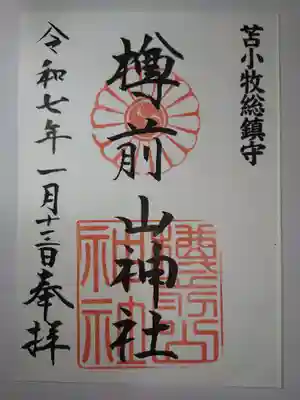 苫小牧総鎮守
樽前山神社
令和七年一月十二日奉拝
樽前山
神社